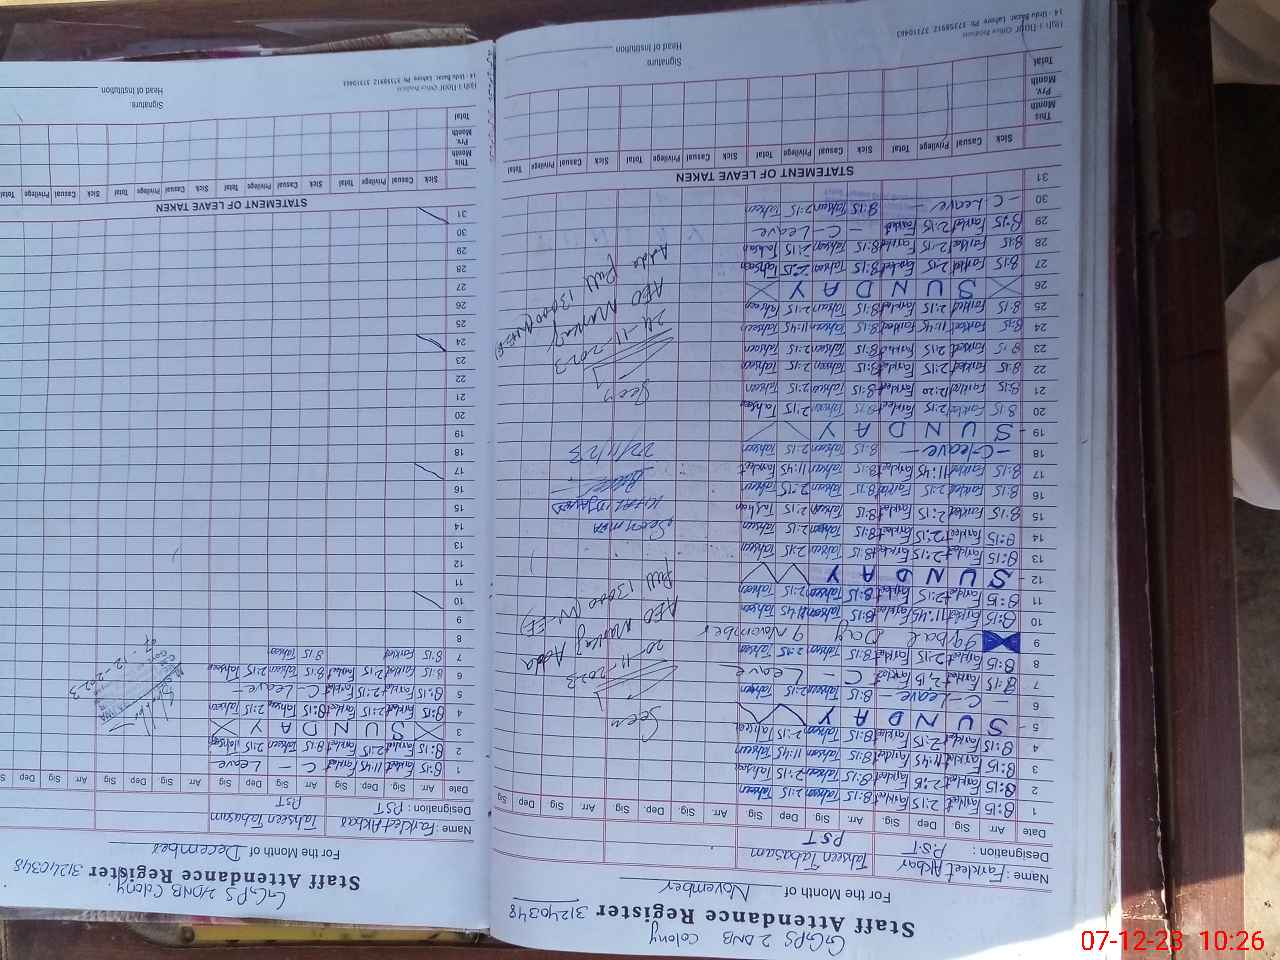 GGPS 2 DNB Colony
Staff Attendance Register 31240348
For the Month of November
Name: Farkleet Akbar
Tahseen Tabasam
Designation: PST
PST
Date Arr. Sig. Dep Sig. Arr. Sig. Dep Sig. Arr. Sig. Dep. Sig.
1 8:15 Farkleet 2:15 Farkleet 8:15 Tahseen 2:15 Tahseen
2 8:15 Farkleet 2:15 Farkleet 8:15 Tahseen 2:15 Tahseen
3 8:15 Farkleet 11:45 Farkleet 8:15 Tahseen 11:45 Tahseen
4 8:15 Farkleet 2:15 Farkleet 8:15 Tahseen 2:15 Tahseen
5 S U N D A Y
6 — C — Leave — 8:15 Tahseen 2:15 Tahseen
7 8:15 Farkleet 2:15 Farkleet C — Leave
8 8:15 Farkleet 2:15 Farkleet 8:15 Tahseen 2:15 Tahseen
9 Iqbal Day 9 November
10 8:15 Farkleet 11:45 Farkleet 8:15 Tahseen 11:45 Tahseen
11 8:15 Farkleet 2:15 Farkleet 8:15 Tahseen 2:15 Tahseen
12 S U N D A Y
13 8:15 Farkleet 2:15 Farkleet 8:15 Tahseen 2:15 Tahseen
14 8:15 Farkleet 2:15 Farkleet 8:15 Tahseen 2:15 Tahseen
15 8:15 Farkleet 2:15 Farkleet 8:15 Tahseen 2:15 Tahseen
16 8:15 Farkleet 2:15 Farkleet 8:15 Tahseen 2:15 Tahseen
17 8:15 Farkleet 11:45 Farkleet 8:15 Tahseen 11:45
18 — C leave — 8:15 Tahseen 2:15 Tahseen
19 S U N D A Y
20 8:15 Farkleet 2:15 Farkleet 8:15 Tahseen 2:15 Tahseen
21 8:15 Farkleet 12:20 Farkleet 8:15 Tahseen 2:15 Tahseen
22 8:15 Farkleet 2:15 Farkleet 8:15 Tahseen 2:15 Tahseen
23 8:15 Farkleet 2:15 Farkleet 8:15 Tahseen 2:15 Tahseen
24 8:15 Farkleet 11:45 Farkleet 8:15 Tahseen 11:45 Tahseen
25 8:15 Farkleet 2:15 Farkleet 8:15 Tahseen 2:15 Tahseen
26 S U N D A Y
27 8:15 Farkleet 2:15 Farkleet 8:15 Tahseen 2:15 Tahseen
28 8:15 Farkleet 2:15 Farkleet 8:15 Tahseen 2:15 Tahseen
29 8:15 Farkleet 2:15 Farkleet — C — Leave
30 — C — Leave — 8:15 Tahseen 2:15 Tahseen
31
Seen
20-11-2023
AEO Markaz Adda
Pull 13000
Seen
KHALID JAVED
22/11/23
Seen
24-11-2023
AEO Markaz
Adda Pull 13000
STATEMENT OF LEAVE TAKEN
Sick Casual Privilege Total Sick Casual Privilege Total Sick Casual Privilege Total Sick Casual Privilege Total
This Month
Prv. Month
Total
Signature
Head of Institution
14 - Urdu Bazar, Lahore Ph: 37358912 37310463
GGPS 2 DNB Colony
Staff Attendance Register 31240348
For the Month of December
Name: Farkleet Akbar
Tahseen Tabasam
Designation: PST
PST
Date Arr. Sig. Dep Sig. Arr. Sig. Dep Sig. Arr. Sig. Dep Sig.
1 8:15 Farkleet 11:45 Farkleet C — Leave
2 8:15 Farkleet 2:15 Farkleet 8:15 Tahseen 2:15 Tahseen
3 S U N D A Y
4 8:15 Farkleet 2:15 Farkleet 8:15 Tahseen 2:15 Tahseen
5 8:15 Farkleet 2:15 Farkleet C — Leave —
6 8:15 Farkleet 2:15 Farkleet 8:15 Tahseen 2:15 Tahseen
7 8:15 Farkleet 8:15 Tahseen
8
9
10
11
12
13
14
15
16
17
18
19
20
21
22
23
24
25
26
27
28
29
30
31
STATEMENT OF LEAVE TAKEN
Sick Casual Privilege Total Sick Casual Privilege Total Sick Casual Privilege Total
This Month
Prv. Month
Total
Signature
Head of Institution
14 - Urdu Bazar, Lahore Ph: 37358912 37310463
07-12-23 10:26